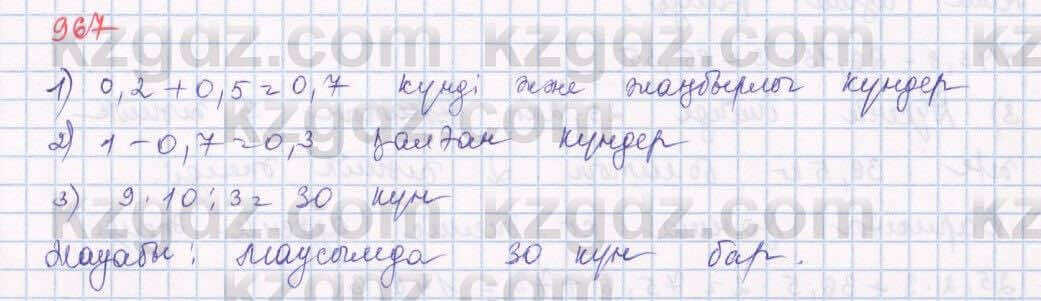 967
1) 0,2 + 0,5 = 0,7 күнді және жаңбырлы күндер
2) 1 - 0,7 = 0,3 қалған күндер
3) 9 · 10 : 3 = 30 күн
Жауабы: маусымда 30 күн бар.
kzgdz.com kzgdz.com
kzgdz.com kzgdz.com